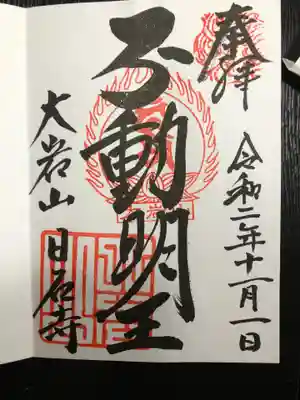 奉拝
令和二年十一月一日
不動明王
大岩山 日石寺